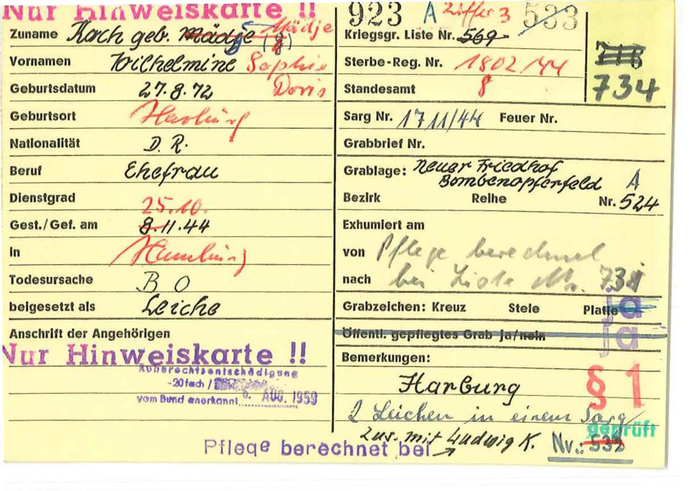 Nur Hinweiskarte !!
Zuname Koch geb. Mädje Mädje
Vornamen Wilhelmine Sophie
Doris
Geburtsdatum 27.8.72
Geburtsort Harburg
Nationalität D. R.
Beruf Ehefrau
Dienstgrad
25.10.
Gest./Gef. am 8.11.44
in Hamburg
Todesursache B O
beigesetzt als Leiche
Anschrift der Angehörigen
Nur Hinweiskarte !!
Ruherechtsentschädigung
-20fach /
vom Bund anerkannt 6. AUG. 1959
Pflege berechnet bei
923 A Ziffer 3 533
Kriegsgr. Liste Nr. 569
Sterbe-Reg. Nr. 1802/44
718
734
Standesamt 8
Sarg Nr. 1711/44 Feuer Nr.
Grabbrief Nr.
Grablage: Neuer Friedhof
Bombenopferfeld A
Bezirk Reihe Nr. 524
Exhumiert am
von Pflege berechnet
nach bei Liste Nr. 734
Grabzeichen: Kreuz Stele Platte
Ja
Öffentl. gepflegtes Grab ja/nein
Ja
Bemerkungen:
Harburg
§ 1
2 Leichen in einem Sarg
geprüft
zus. mit Ludwig K. Nr.: 532